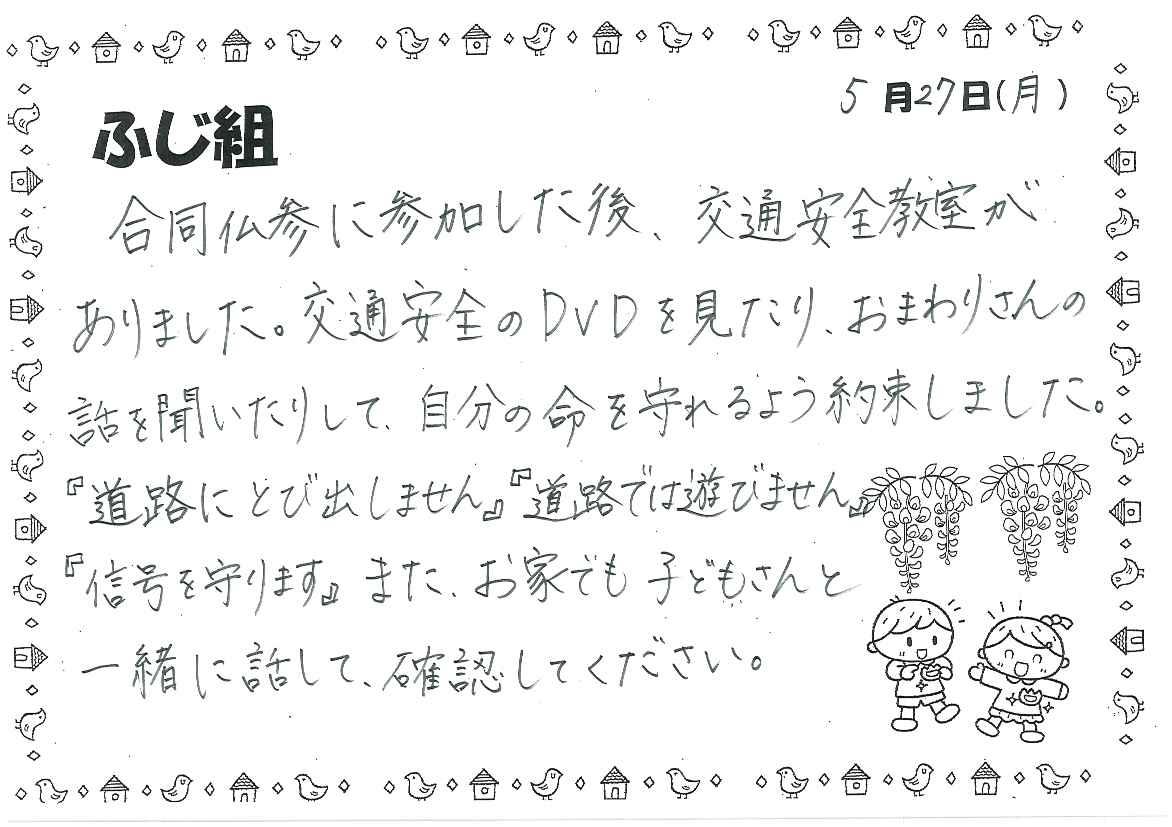 5月27日(月)
ふじ組
合同仏参に参加した後、交通安全教室が
ありました。交通安全のDVDを見たり、おまわりさんの
話を聞いたりして、自分の命を守れるよう約束しました。
『道路にとび出しません』『道路では遊びません』
『信号を守ります』また、お家でも子どもさんと
一緒に話して、確認してください。